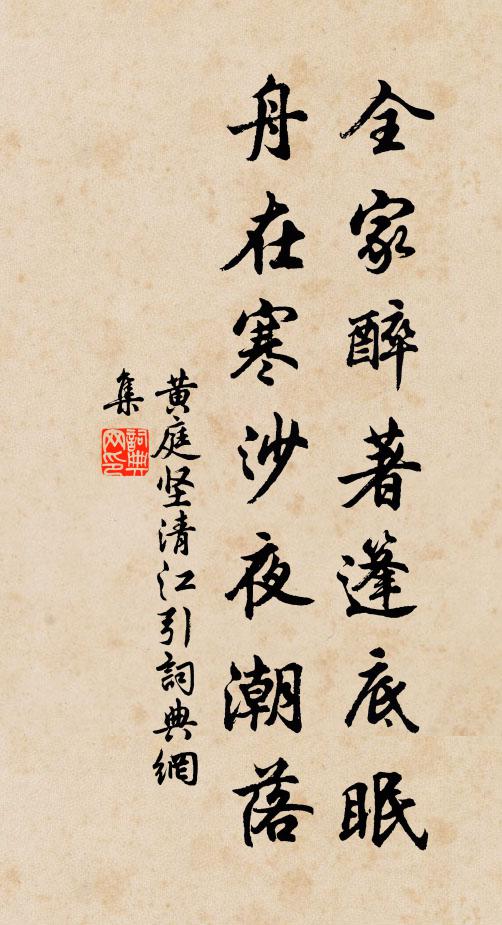 全家醉著篷底眠
舟在寒沙夜潮落
黄庭坚清江引詞典網
集
詞典
网印